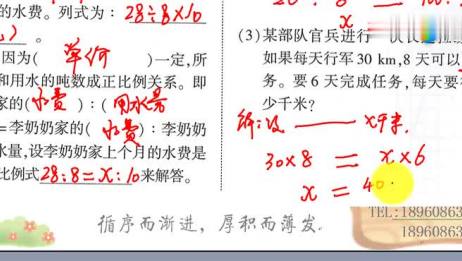 的水费。列式为：28÷8×10
)。
因为( 单价 )一定,所
和用水的吨数成正比例关系。即
家的(水费):(用水量)
=李奶奶家的(水费):李奶奶
水量,设李奶奶家上个月的水费是
比例式28:8=x:10来解答。
x
(3)某部队官兵进行
如果每天行军30 km,8天可以
务。要6天完成任务,每天要
少千米?
解:设 —— x千米.
30×8 = x×6
x = 40
循序而渐进，厚积而薄发.
TEL:18960863
18960863